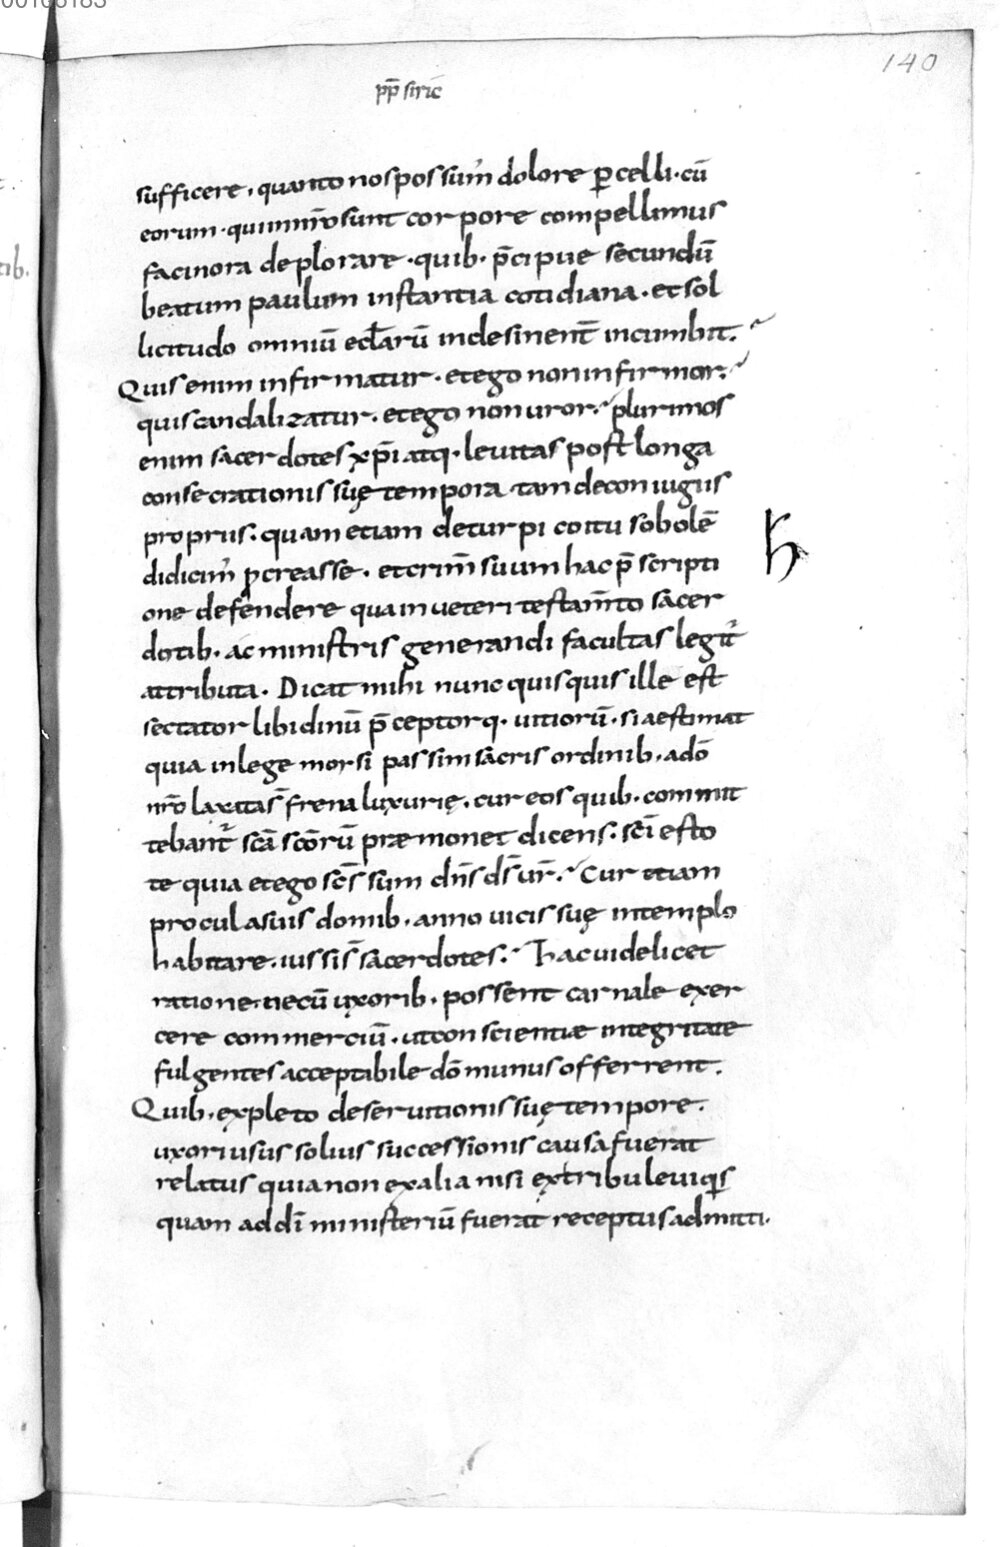 00106183
140
pp̄ siric̄
tib.
sufficere, quanto nos possum᷒ dolore ꝑcelli · cū
eorum · qui in nr̄o sunt corpore compellimus
facinora deplorare · quib· p̄cipue secundū
beatum paulum instantia cotidiana · et sol
licitudo omniū eccl̄arū indesinent̄ incumbit.
Quis enim infirmatur · et ego non infirmor.
quis candalizatur · et ego non uror. plurimos
enim sacerdotes xp̄i atq· leuitas post longa
consecrationis suę tempora tam de coniugiis
propriis · quam etiam de turpi coitu sobolē
didicim᷒ ꝓcreasse · et crim̄ suum hac p̄scripti
one defendere qua in ueteri testam̄to sacer
dotib· ac ministris generandi facultas legit᷒
attributa · Dicat mihi nunc quisquis ille est
sectator libidinū p̄ceptorq· uitiorū · si aestimat
quia in lege morsi passim sacris ordinib· a dō
nr̄o laxatas frena luxurię, cur eos quib· commit
tebant᷒ sc̄a sc̄orū præmonet dicens: sc̄i esto
te quia et ego sc̄s sum dn̄s ds̄ ur̄. Cur etiam
procul a suis domib· anno uicis suę in templo
habitare iussi s̄ sacerdotes. Hac uidelicet
ratione nec cū uxorib· possent carnale exer
cere commerciū · ut conscientiæ integritate
fulgentes acceptabile dō munus offerrent.
Quib· expleto deseruitionis suę tempore.
uxori usus solius successionis causa fuerat
relatus quia non ex alia nisi ex tribu leui qis
quam ad dī ministeriū fuerat receptus admitti.